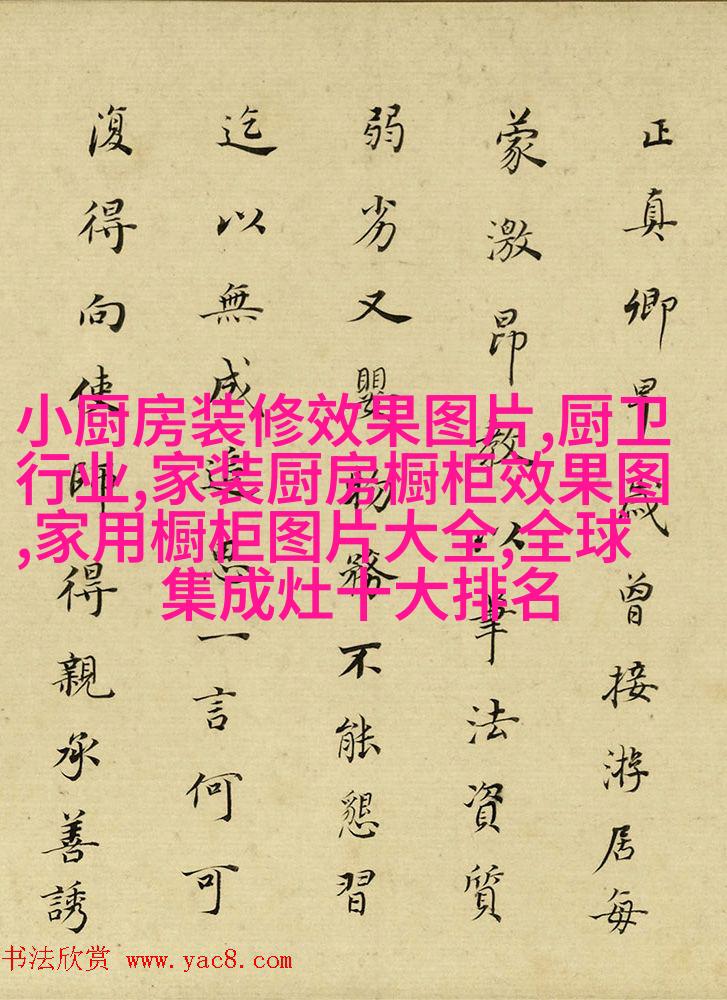 正真卿早歲曾接游居每
蒙激昂教以筆法資質
弱劣又嬰物務不能懇習
迄以無成追思一言何可
復得向使師得親承善誘
小厨房装修效果图片,厨卫
行业,家装厨房橱柜效果图
,家用橱柜图片大全,全球
集成灶十大排名
书法欣赏 www.yac8.com